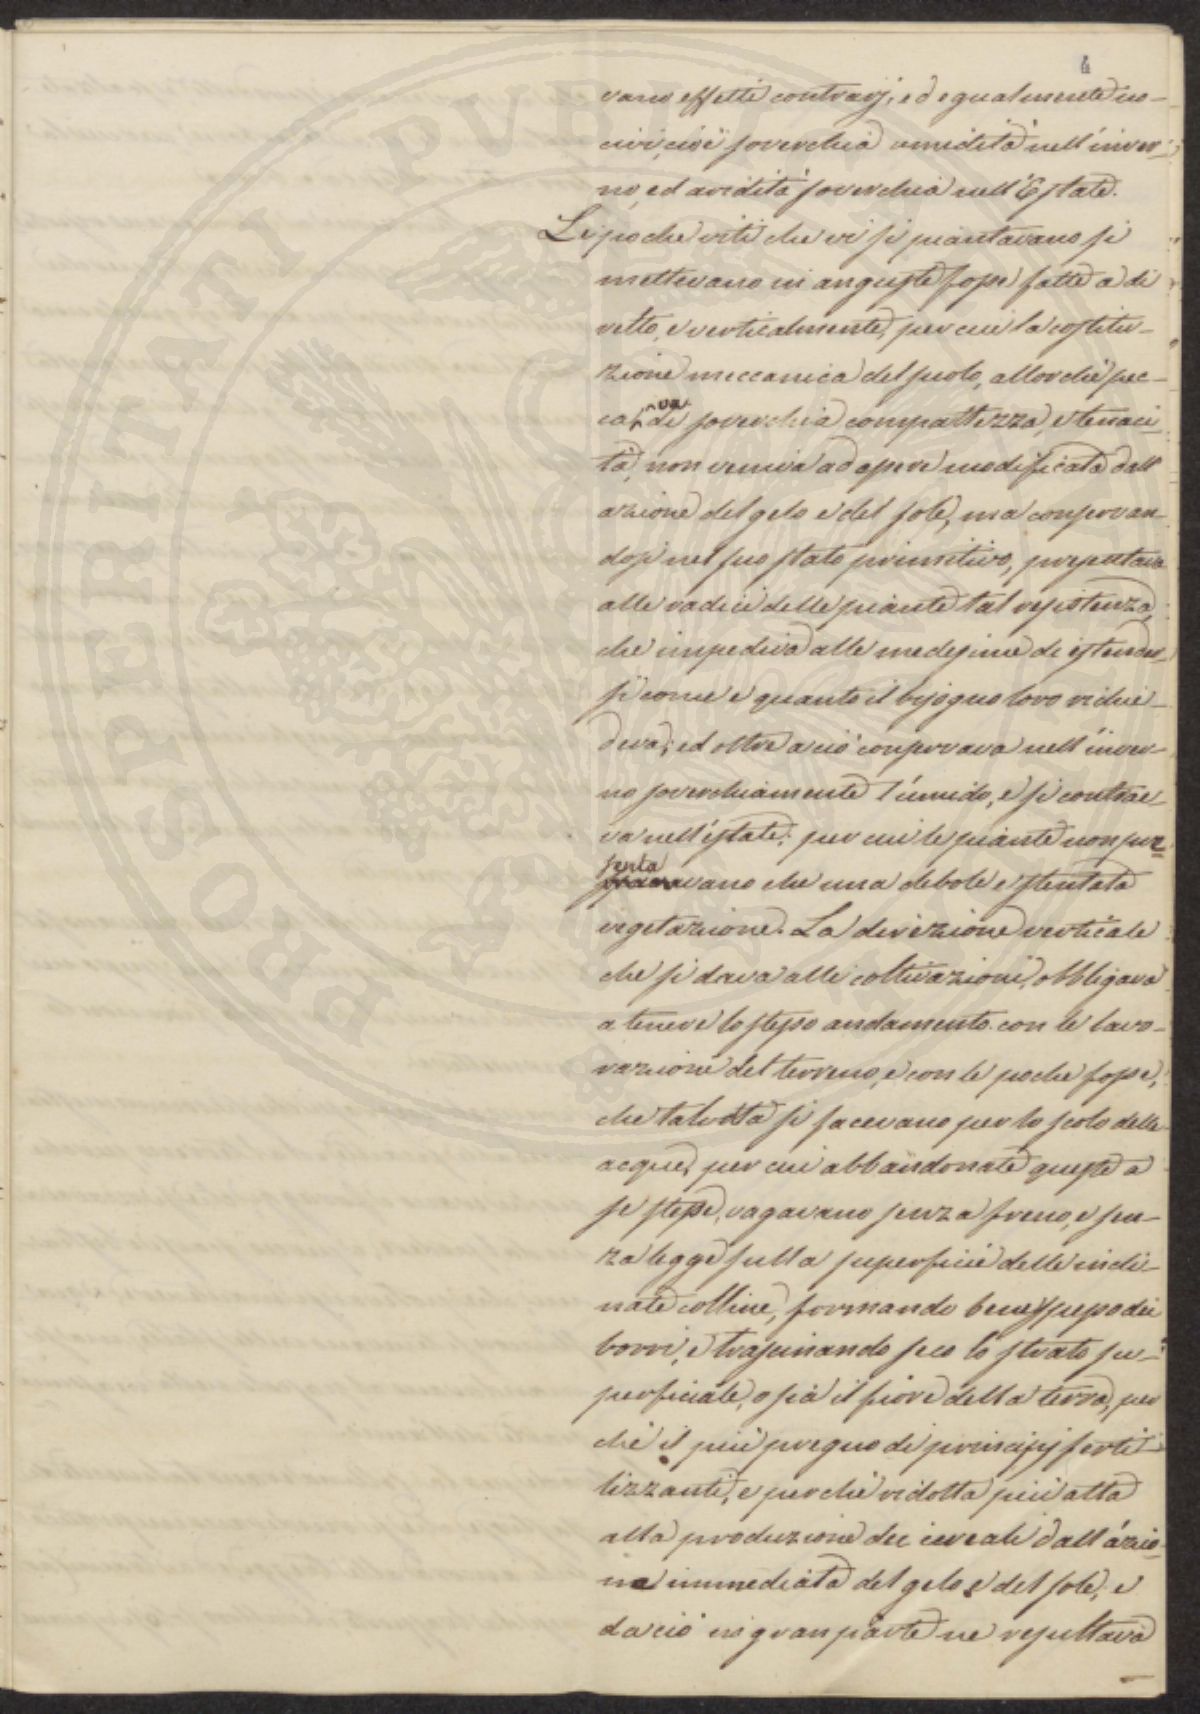 4
vano effetti contrarj, ed egualmente no-
civi, cioè soverchia umidità nell'inver-
no, ed aridità soverchia nell'Estate.
Le poche viti che vi si piantavano si
mettevano in anguste fosse fatte a di
retto, e verticalmente, per cui la costitu-
zione meccanica del suolo, allorchè pec-
cava di soverchia compattezza, e tenaci-
tà, non veniva ad essere modificata dall'
azione del gelo e del sole, ma conservan-
dosi nel suo stato primitivo, presentava
alle radici delle piante tal resistenza,
che impediva alle medesime di estender-
si come e quanto il bisogno loro richie-
deva; ed oltre a ciò conservava nell'inver-
no soverchiamente l'umido, e si contrae-
va nell'estate; per cui le piante non pre
sentavano che una debole e stentata
vegetazione. La direzione verticale
che si dava alle coltivazioni, obbligava
a tenere lo stesso andamento con le lavo-
razioni del terreno, e con le poche fosse,
che talvolta si facevano per lo scolo delle
acque, per cui abbandonate queste a
se stesse, vagavano senza freno, e sen-
za legge sulla superficie delle incli-
nate colline, formando bene spesso dei
borri, e trascinando seco lo strato su-
perficiale, o sia il fiore della terra, per
chè il più pregno di principj ferti-
lizzanti, e perchè ridotta più atta
alla produzione dei cereali dall'azio-
ne immediata del gelo, e del sole, e
da ciò in gran parte ne resultava
PROSPERITATI PVBLICAE